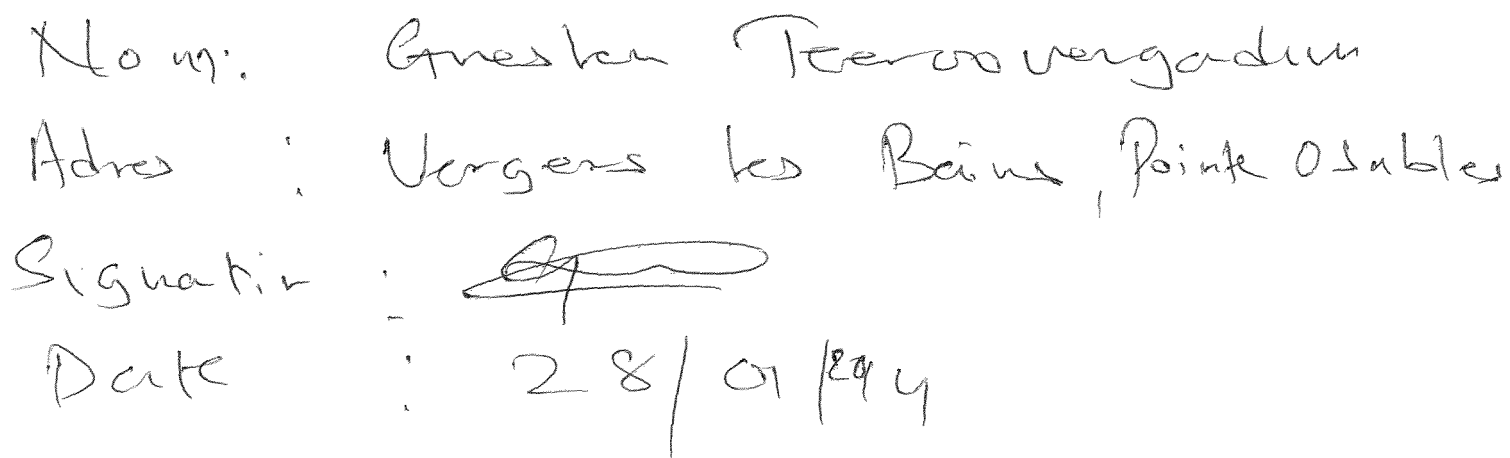 Nom: Gnesten Teeroovengadum
Adres : Vergers les Bains, Pointe O Sables
Signatir :
Date : 28/01/